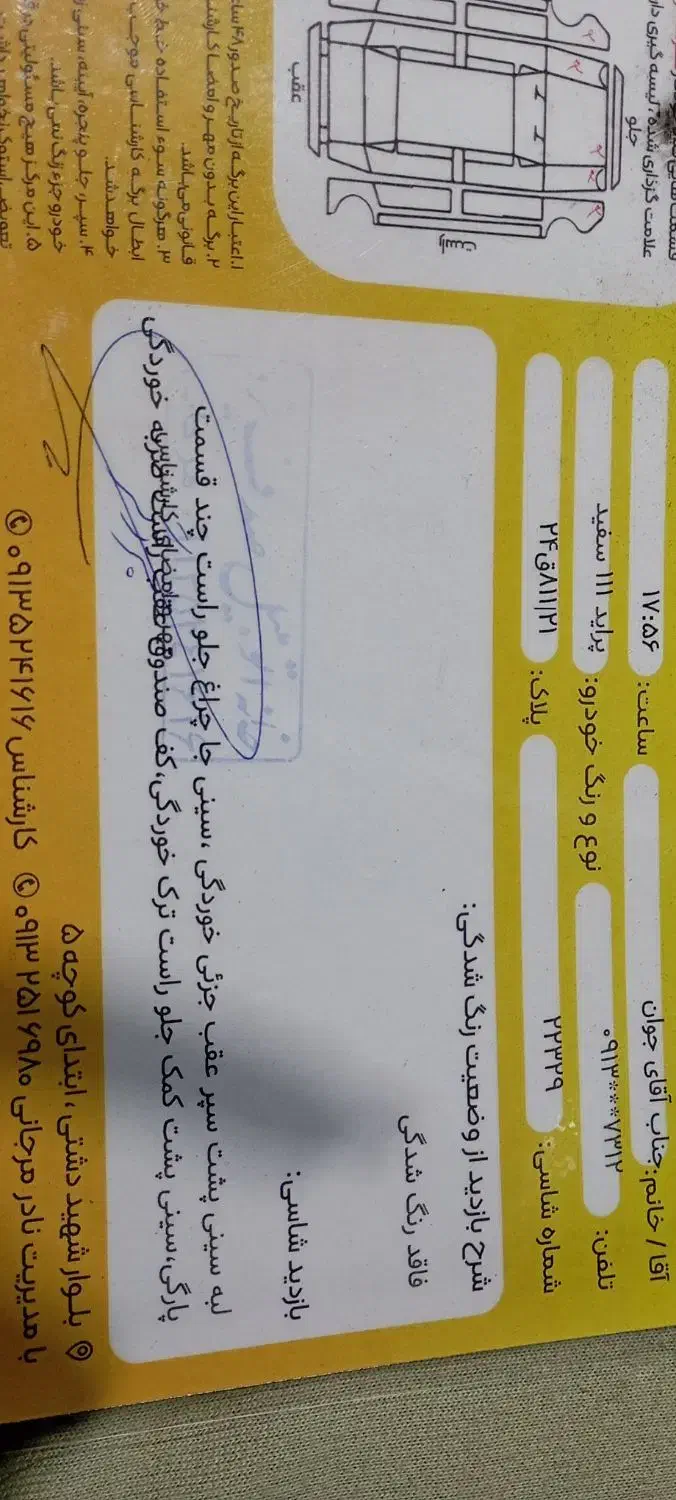 علامت گذاری شده، لیسه گیری
جلو
عقب
۱. اعتبار این برگه از تاریخ صدور ۴۸
۲. برگه بدون مهر و امضا
قانونی می‌باشد.
۳. هرگونه سوء استفاده
ابطال برگه کارشناسی موجب
خواهد شد.
۴. سپر، جلو پنجره، آیینه، سینی
خودرو جزء رنگ نمی باشد.
۵. این مرکز هیچ مسئولیتی
آقا / خانم: جناب آقای جوان
ساعت: ۱۷:۵۶
تلفن: ۰۹۱۳***۷۳۱۲
نوع و رنگ خودرو: پراید ۱۱۱ سفید
شماره شاسی: ۲۲۳۲۹
پلاک: ۲۴ق۸۱۱/۲۱
شرح بازدید از وضعیت رنگ شدگی:
فاقد رنگ شدگی
بازدید شاسی:
لبه سینی پشت سپر عقب جزئی خوردگی، سینی جا چراغ جلو راست چند قسمت
پارگی، سینی پشت کمک جلو راست ترک خوردگی، کف صندوق عقب راست ضربه خوردگی
بلوار شهید دشتی، ابتدای کوچه ۵
با مدیریت نادر مرجانی ۰۹۱۳ ۲۵۱ ۶۹۸۰ کارشناس ۰۹۱۳۵۲۴۱۶۱۶